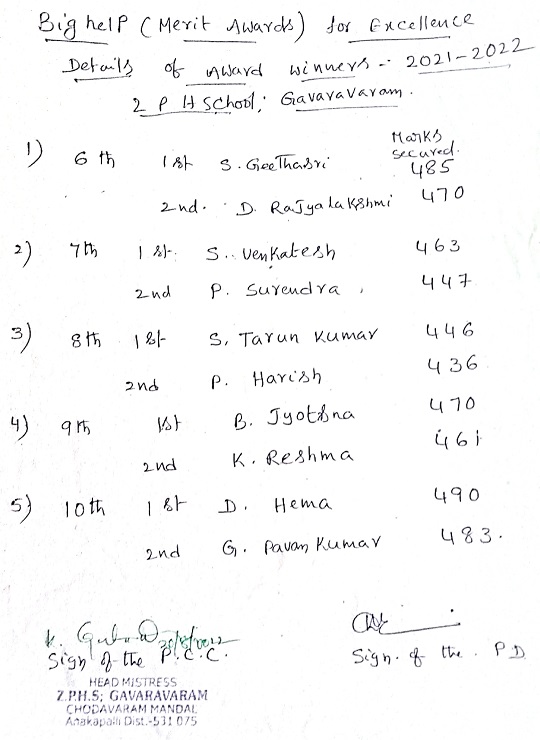 Big help (Merit Awards) for Excellence
Details of Award winners - 2021-2022
Z P H School, Gavaravaram.
Marks secured.
1) 6th 1st S. Geethasri 485
2nd. D. Rajyalakshmi 470
2) 7th 1st S. Venkatesh 463
2nd P. Surendra 447
3) 8th 1st S. Tarun Kumar 446
2nd P. Harish 436
4) 9th 1st B. Jyotsna 470
2nd K. Reshma 461
5) 10th 1st D. Hema 490
2nd G. Pavan Kumar 483.
Sign of the P.C.C.
Sign. of the. P D
HEAD MISTRESS
Z.P.H.S; GAVARAVARAM
CHODAVARAM MANDAL
Anakapalli Dist.-531 075